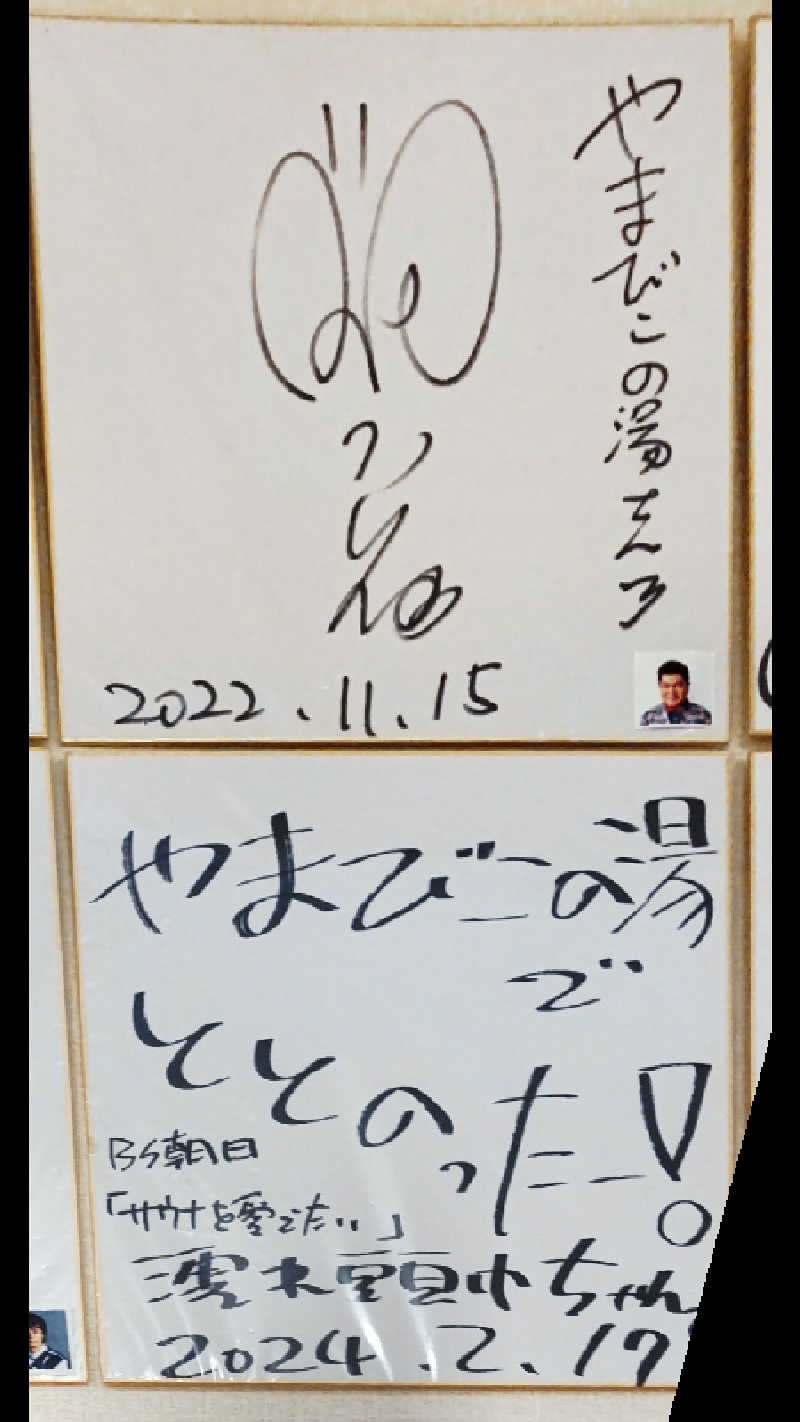 やまびこの湯さんへ
2022.11.15
やまびこの湯
で
ととのったー!
BS朝日
「サウナを愛でたい」
濡れ頭巾ちゃん
2024.2.17